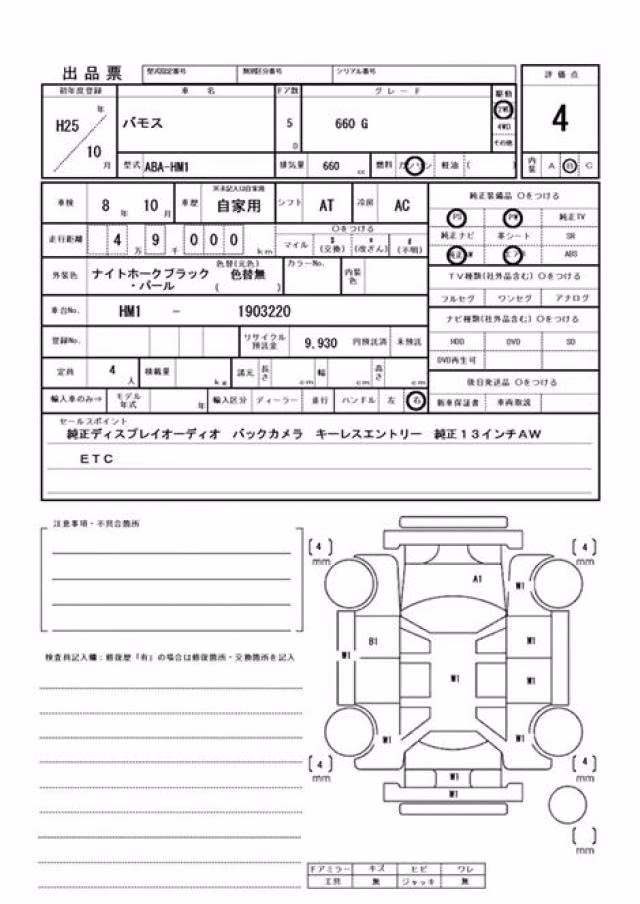 出品票 型式指定番号 類別区分番号 シリアル番号
初年度登録 車名 ドア数 グレード 駆動 評価点
H25 年 10 月 バモス 5 D 660 G 2WD 4WD その他 4
型式 ABA-HM1 排気量 660 cc 燃料 ガソリン 軽油 ( ) 内装 A B C
車検 8 年 10 月 車歴 ※未記入は自家用 自家用 シフト AT 冷房 AC 純正装備品 ○をつける
走行距離 4 万 9 千 000 km ○をつける マイル $ (交換) * (改ざん) # (不明)
PS PW 純正TV
純正ナビ 革シート SR
純正AW エアB ABS
外装色 ナイトホークブラック・パール 色替(元色) 色替無 ( ) カラーNo. 内装色
TV種類(社外品含む) ○をつける
フルセグ ワンセグ アナログ
車台No. HM1 - 1903220
ナビ種類(社外品含む) ○をつける
登録No. リサイクル預託金 9,930 円預託済 未預託
HDD DVD SD
DVD再生可
定員 4 人 積載量 kg 諸元 長さ cm 幅 cm 高さ cm
後日発送品 ○をつける
輸入車のみ⇒ モデル年式 年 輸入区分 ディーラー 並行 ハンドル 左 右 新車保証書 車両取説
セールスポイント
純正ディスプレイオーディオ バックカメラ キーレスエントリー 純正13インチAW
ETC
注意事項・不具合箇所
[4] mm [4] mm
A1 W1
B1 W1
W1 W1 W1
W1 W1
[4] mm W1 [4] mm
W1
[ ] mm
検査員記入欄：修復歴「有」の場合は修復箇所・交換箇所を記入
ドアミラー キズ ヒビ ワレ
工具 無 ジャッキ 無